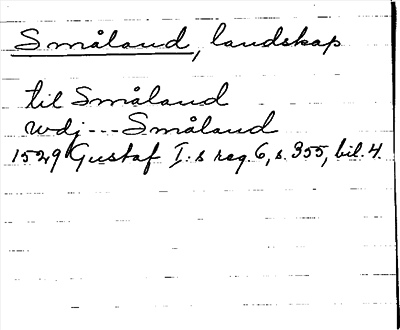 Småland, landskap
til Småland
wdj --- Småland
1529 Gustaf I:s reg. 6, s. 355, bil. 4.